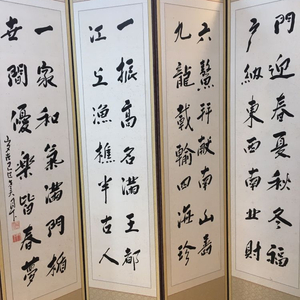 門迎春夏秋冬福
戶納東西南北財
六鰲拜獻南山壽
九龍載輸四海珍
一振高名滿王都
江上漁樵半古人
一家和氣滿門楣
世間優樂皆春夢